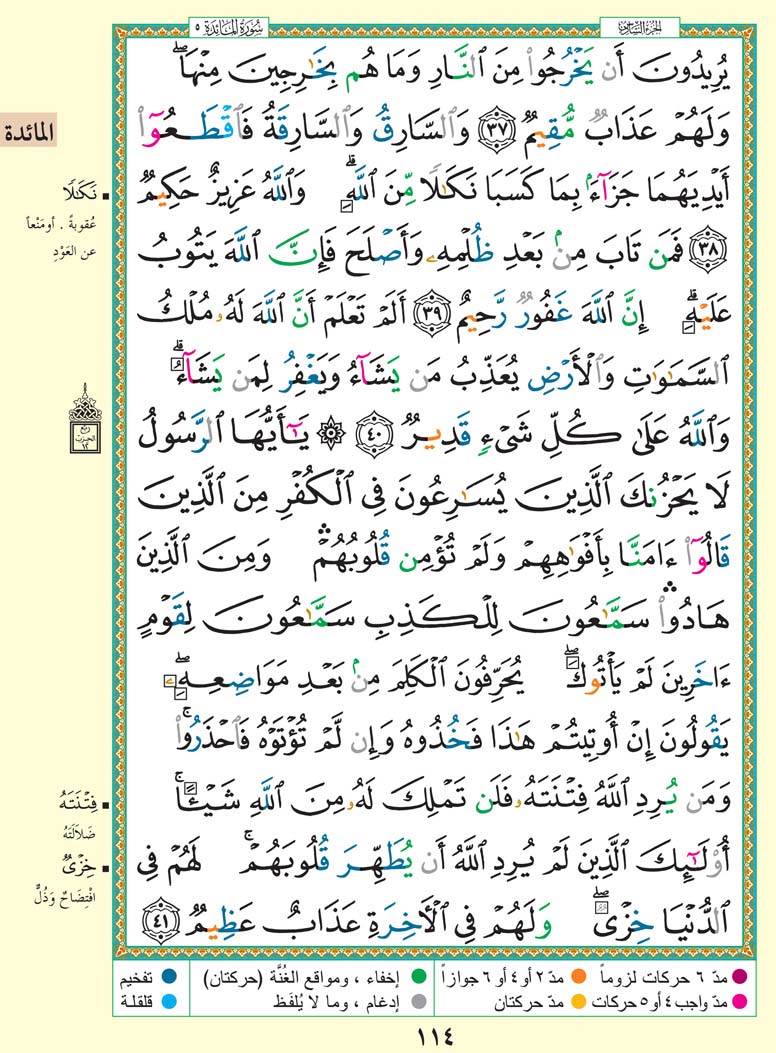 الجزء السادس
سورة المائدة ٥
يُرِيدُونَ أَن يَخْرُجُوا۟ مِنَ ٱلنَّارِ وَمَا هُم بِخَـٰرِجِينَ مِنْهَا ۖ
وَلَهُمْ عَذَابٌ مُّقِيمٌ ﴿٣٧﴾ وَٱلسَّارِقُ وَٱلسَّارِقَةُ فَٱقْطَعُوٓا۟
أَيْدِيَهُمَا جَزَآءًۢ بِمَا كَسَبَا نَكَـٰلًا مِّنَ ٱللَّهِ ۗ وَٱللَّهُ عَزِيزٌ حَكِيمٌ
﴿٣٨﴾ فَمَن تَابَ مِنۢ بَعْدِ ظُلْمِهِۦ وَأَصْلَحَ فَإِنَّ ٱللَّهَ يَتُوبُ
عَلَيْهِ ۗ إِنَّ ٱللَّهَ غَفُورٌ رَّحِيمٌ ﴿٣٩﴾ أَلَمْ تَعْلَمْ أَنَّ ٱللَّهَ لَهُۥ مُلْكُ
ٱلسَّمَـٰوَٰتِ وَٱلْأَرْضِ يُعَذِّبُ مَن يَشَآءُ وَيَغْفِرُ لِمَن يَشَآءُ ۗ
وَٱللَّهُ عَلَىٰ كُلِّ شَىْءٍ قَدِيرٌ ﴿٤٠﴾ ۞ يَـٰٓأَيُّهَا ٱلرَّسُولُ
لَا يَحْزُنكَ ٱلَّذِينَ يُسَـٰرِعُونَ فِى ٱلْكُفْرِ مِنَ ٱلَّذِينَ
قَالُوٓا۟ ءَامَنَّا بِأَفْوَٰهِهِمْ وَلَمْ تُؤْمِن قُلُوبُهُمْ ۛ وَمِنَ ٱلَّذِينَ
هَادُوا۟ ۛ سَمَّـٰعُونَ لِلْكَذِبِ سَمَّـٰعُونَ لِقَوْمٍ
ءَاخَرِينَ لَمْ يَأْتُوكَ ۖ يُحَرِّفُونَ ٱلْكَلِمَ مِنۢ بَعْدِ مَوَاضِعِهِۦ ۖ
يَقُولُونَ إِنْ أُوتِيتُمْ هَـٰذَا فَخُذُوهُ وَإِن لَّمْ تُؤْتَوْهُ فَٱحْذَرُوا۟ ۚ
وَمَن يُرِدِ ٱللَّهُ فِتْنَتَهُۥ فَلَن تَمْلِكَ لَهُۥ مِنَ ٱللَّهِ شَيْـًٔا ۚ
أُو۟لَـٰٓئِكَ ٱلَّذِينَ لَمْ يُرِدِ ٱللَّهُ أَن يُطَهِّرَ قُلُوبَهُمْ ۚ لَهُمْ فِى
ٱلدُّنْيَا خِزْىٌ ۖ وَلَهُمْ فِى ٱلْـَٔاخِرَةِ عَذَابٌ عَظِيمٌ ﴿٤١﴾
المائدة
نَكَـٰلًا
عُقوبةً . أو مَنْعاً
عن العَوْدِ
ربع
الحزب
١٢
فِتْنَتَهُ
ضَلَالَتَهُ
خِزْىٌ
افْتِضَاحٌ وَذُلٌّ
مدّ ٦ حركات لزوماً
مدّ ٢ أو ٤ أو ٦ جوازاً
إخفاء ، ومواقع الغُنَّة (حركتان)
تفخيم
مدّ واجب ٤ أو ٥ حركات
مدّ حركتان
إدغام ، وما لا يُلفَظ
قلقلة
١١٤